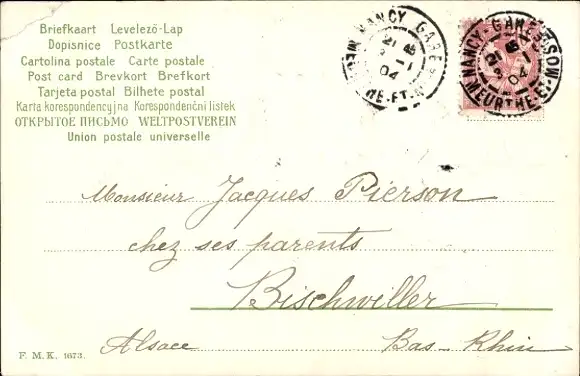 Briefkaart Levelező-Lap
Dopisnice Postkarte
Cartolina postale Carte postale
Post card Brevkort Brefkort
Tarjeta postal Bilhete postal
Karta korespondencyjna Korespondenční lístek
ОТКРЫТОЕ ПИСЬМО WELTPOSTVEREIN
Union postale universelle
NANCY GARE
21
3 -1
04
NANCY-GARE
21
3 -1
04
MEURTHE-E
Monsieur Jacques Pierson
chez ses parents
Bischwiller
Alsace Bas-Rhin
F. M. K. 1673.